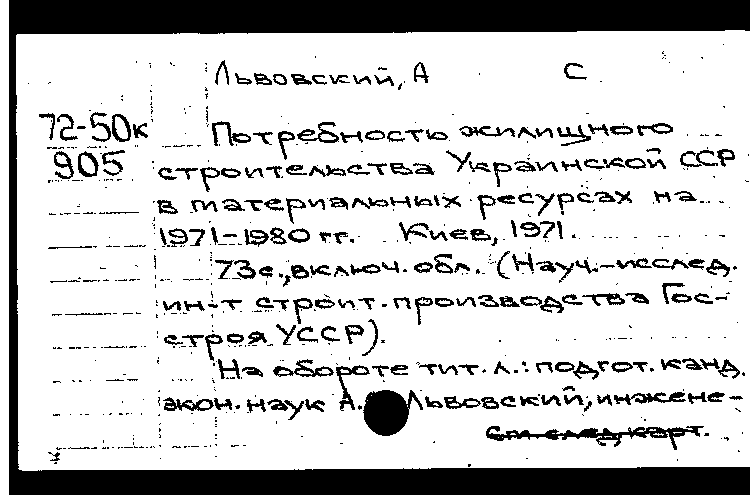 Львовский, А С
72-50к
905
Потребность жилищного
строительства Украинской ССР
в материальных ресурсах на
1971-1980 гг. Киев, 1971.
73с., включ. обл. (Науч.-исслед.
ин-т строит. производства Гос-
строя УССР).
На обороте тит. л.: подгот. канд.
экон. наук А. Львовский, инжене-
См след карт.